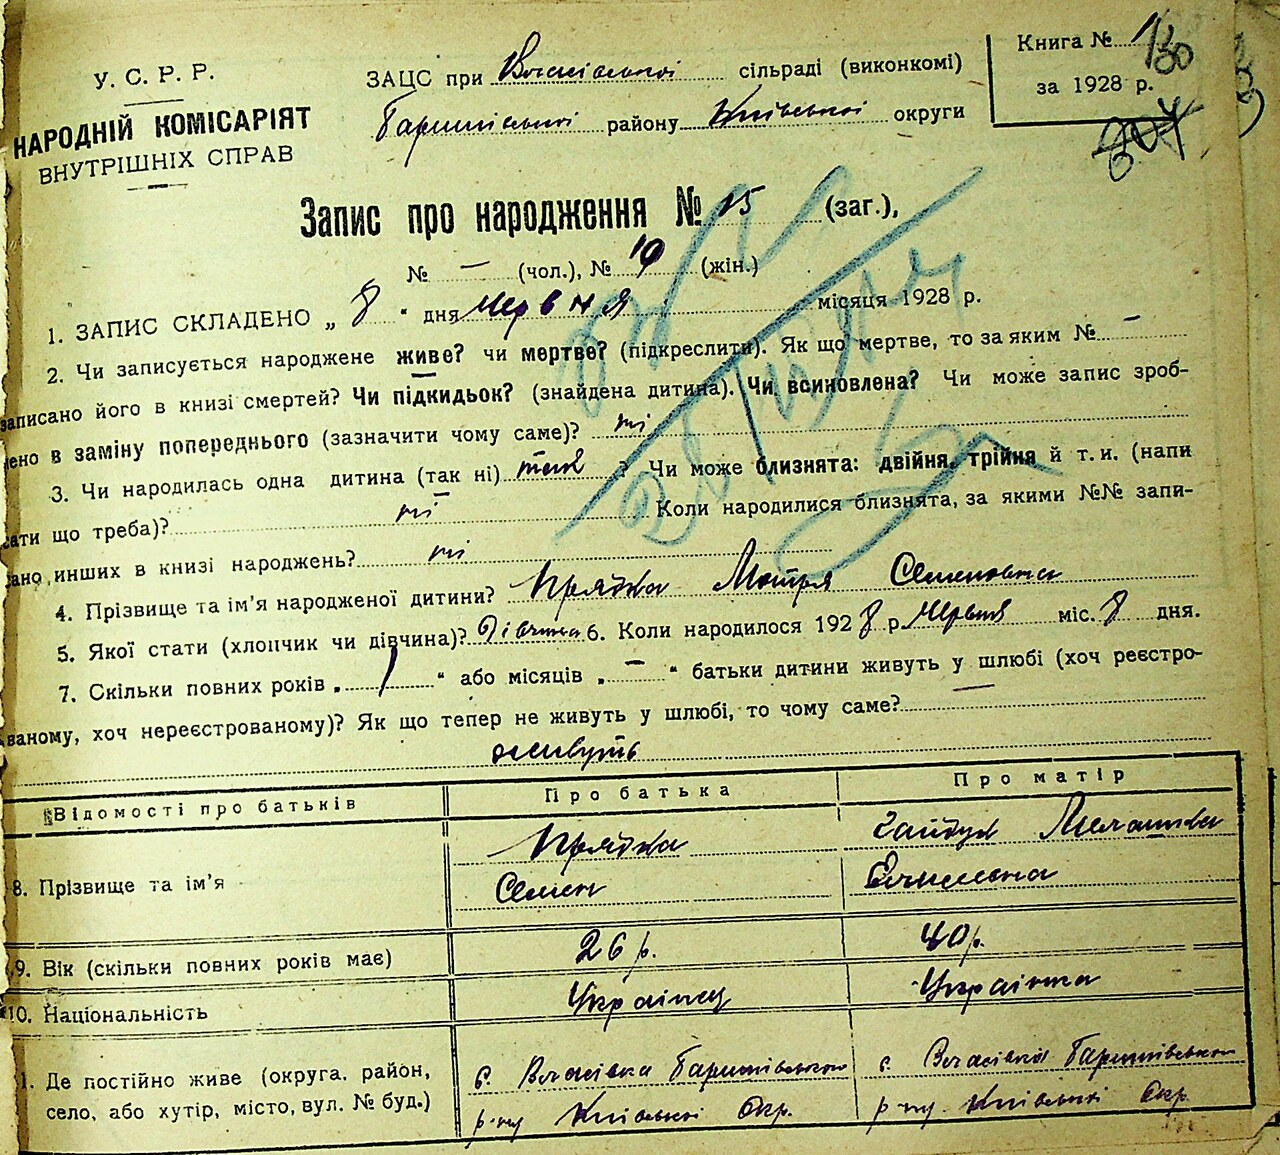 У. С. Р. Р.
НАРОДНІЙ КОМІСАРІЯТ
ВНУТРІШНІХ СПРАВ
ЗАЦС при сільраді (виконкомі)
району Київської округи
Книга № 1
за 1928 р.
Запис про народження № 15 (заг.),
№ – (чол.), № (жін.)
1. ЗАПИС СКЛАДЕНО „ 8 “ дня червня місяця 1928 р.
2. Чи записується народжене живе? чи мертве? (підкреслити). Як що мертве, то за яким № –
записано його в книзі смертей? Чи підкидьок? (знайдена дитина). Чи всиновлена? Чи може запис зроб-
лено в заміну попереднього (зазначити чому саме)? ні
3. Чи народилась одна дитина (так ні) так ? Чи може близнята: двійня, трійня й т. и. (напи
сати що треба)? ні Коли народилися близнята, за якими №№ запи-
сано инших в книзі народжень? ні
4. Прізвище та ім’я народженої дитини? Прядка Мотря Семеновна
5. Якої стати (хлопчик чи дівчина)? Дівчина 6. Коли народилося 1928 р. червня міс. 8 дня.
7. Скільки повних років „ 1 “ або місяців „ – “ батьки дитини живуть у шлюбі (хоч реєстро-
ваному, хоч нереєстрованому)? Як що тепер не живуть у шлюбі, то чому саме?
живуть
Відомості про батьків Про батька Про матір
8. Прізвище та ім’я Прядка Семен Гайдук
9. Вік (скільки повних років має) 26 р. 40 р.
10. Національність Українец Українка
Де постійно живе (округа, район, с. с.
село, або хутір, місто, вул. № буд.) р-ну Київської Окр. р-ну Київської Окр.